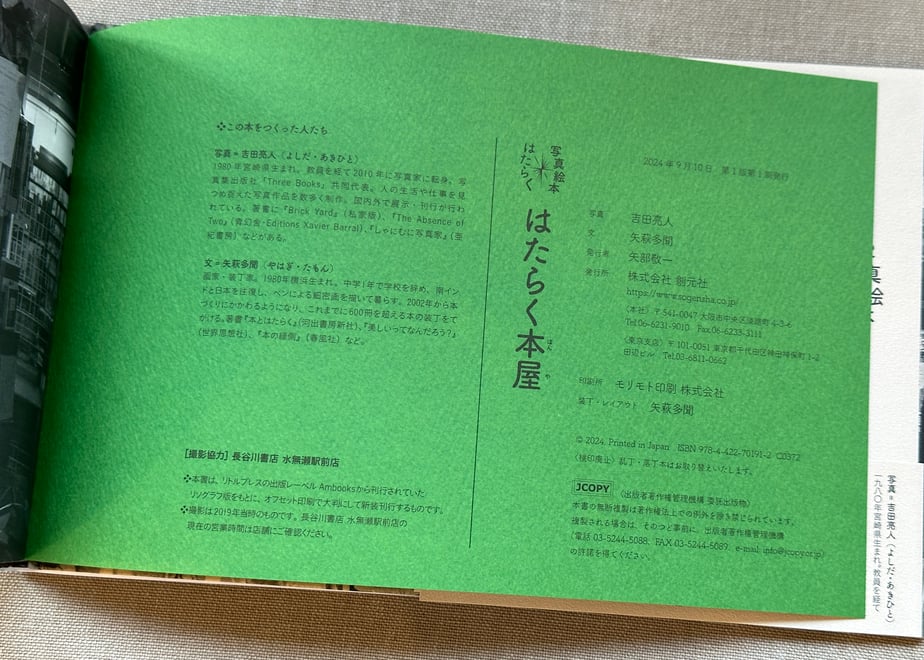 ❖この本をつくった人たち
写真＝吉田亮人（よしだ・あきひと）
1980年宮崎県生まれ。教員を経て2010年に写真家に転身。写
真集出版社「Three Books」共同代表。人の生活や仕事を見
つめ捉えた写真作品を数多く制作。国内外で展示・刊行が行わ
れている。著書に『Brick Yard』（私家版）、『The Absence of
Two』（青幻舎・Editions Xavier Barral）、『しゃにむに写真家』（亜
紀書房）などがある。
文＝矢萩多聞（やはぎ・たもん）
画家・装丁家。1980年横浜生まれ。中学1年で学校を辞め、南イン
ドと日本を往復し、ペンによる細密画を描いて暮らす。2002年から本
づくりにかかわるようになり、これまでに600冊を超える本の装丁をて
がける。著書『本とはたらく』（河出書房新社）、『美しいってなんだろう？』
（世界思想社）、『本の縁側』（春風社）など。
［撮影協力］長谷川書店 水無瀬駅前店
❖本書は、リトルプレスの出版レーベル Ambooksから刊行されていた
リソグラフ版をもとに、オフセット印刷で大判にして新装刊行するものです。
❖撮影は2019年当時のものです。長谷川書店 水無瀬駅前店の
現在の営業時間は店舗にご確認ください。
写真絵本
はたらく
はたらく本屋
ほん
や
2024年9月10日 第1版第1刷発行
写真 吉田亮人
文 矢萩多聞
発行者 矢部敬一
発行所 株式会社 創元社
https://www.sogensha.co.jp/
〈本社〉〒541-0047 大阪市中央区淡路町4-3-6
Tel.06-6231-9010 Fax.06-6233-3111
〈東京支店〉〒101-0051 東京都千代田区神田神保町1-2
田辺ビル Tel.03-6811-0662
印刷所 モリモト印刷 株式会社
装丁・レイアウト 矢萩多聞
© 2024, Printed in Japan ISBN 978-4-422-70191-2 C0372
〈検印廃止〉乱丁・落丁本はお取り替えいたします。
JCOPY 〈出版者著作権管理機構 委託出版物〉
本書の無断複製は著作権法上での例外を除き禁じられています。
複製される場合は、そのつど事前に、出版者著作権管理機構
（電話 03-5244-5088、FAX 03-5244-5089、e-mail: info@jcopy.or.jp）
の許諾を得てください。
真絵
写真＝吉田亮人（よしだ・あきひと）
一九八〇年宮崎県生まれ。教員を経て